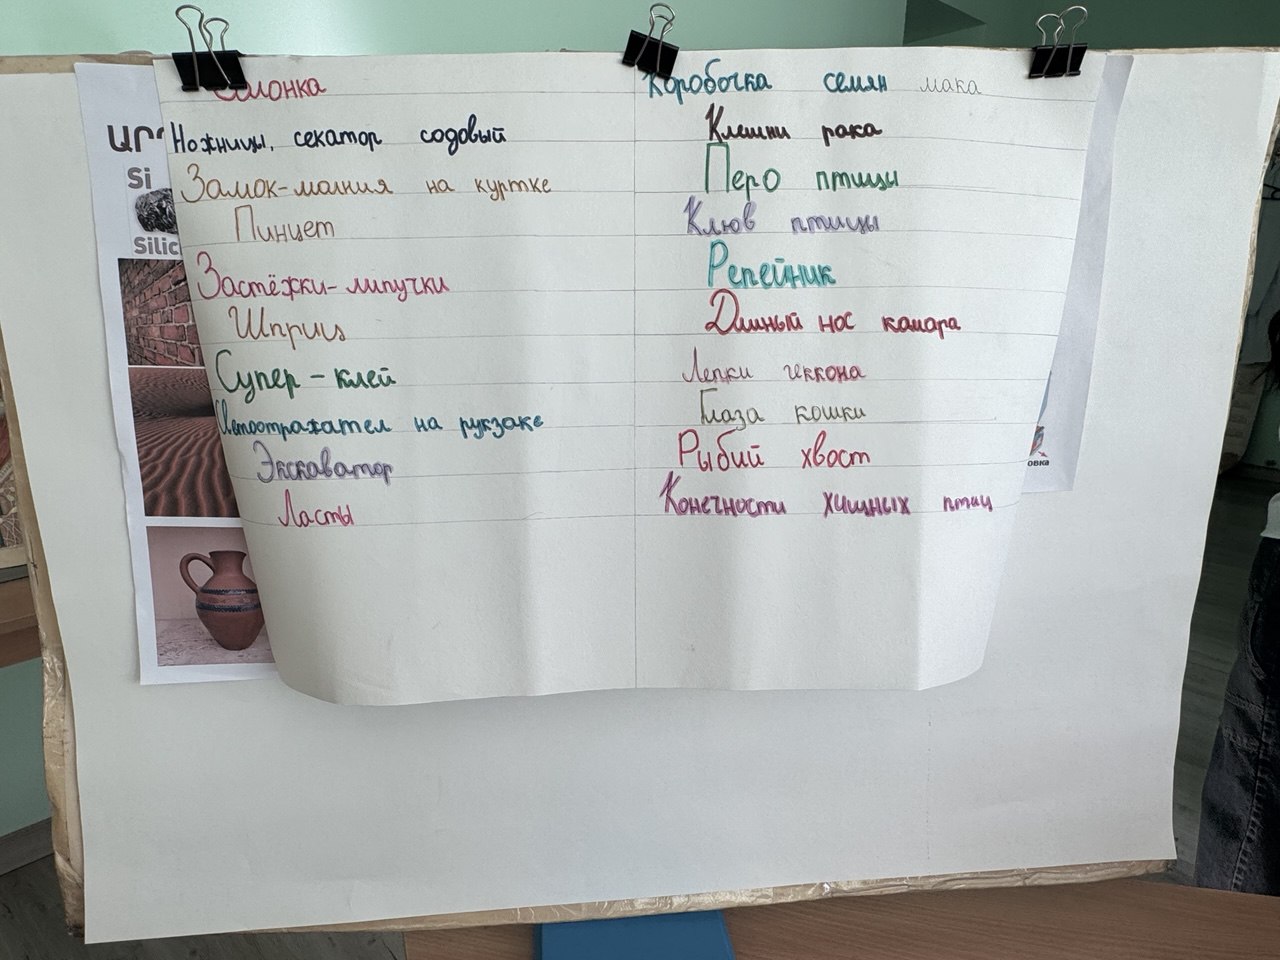 Солонка
Коробочка семян мака
Ножницы, секатор содовый
Клешни рака
Замок-молния на куртке
Перо птицы
Пинцет
Клюв птицы
Застёжки-липучки
Репейник
Шприц
Длинный нос камара
Супер-клей
Лепки геккона
Светоотражател на рукзаке
Глаза кошки
Экскаватор
Рыбий хвост
Ласты
Конечности хищных птиц
Si
Silic
овка